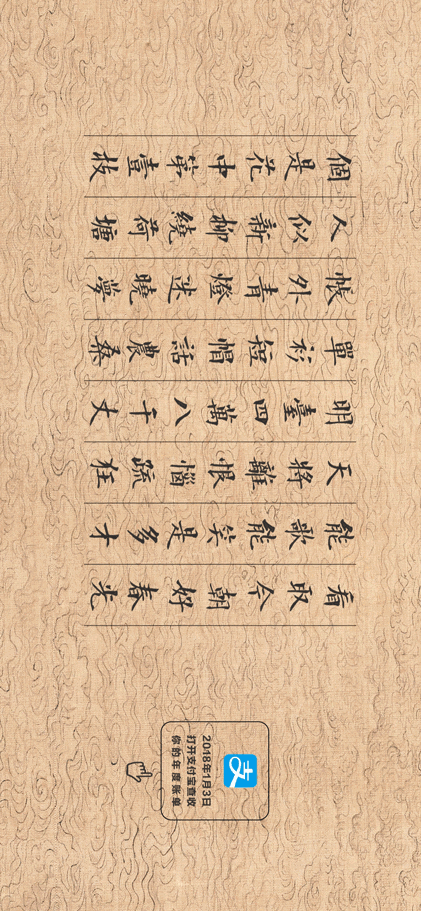 個是花中第壹枝
人似新柳繞荷塘
帳外青燈迷曉夢
單衫短帽話農桑
明臺四萬八千丈
天將離恨惱疏狂
能歌能笑是多十
看取今朝好春光
支
2018年1月3日
打开支付宝查收
你的年度账单